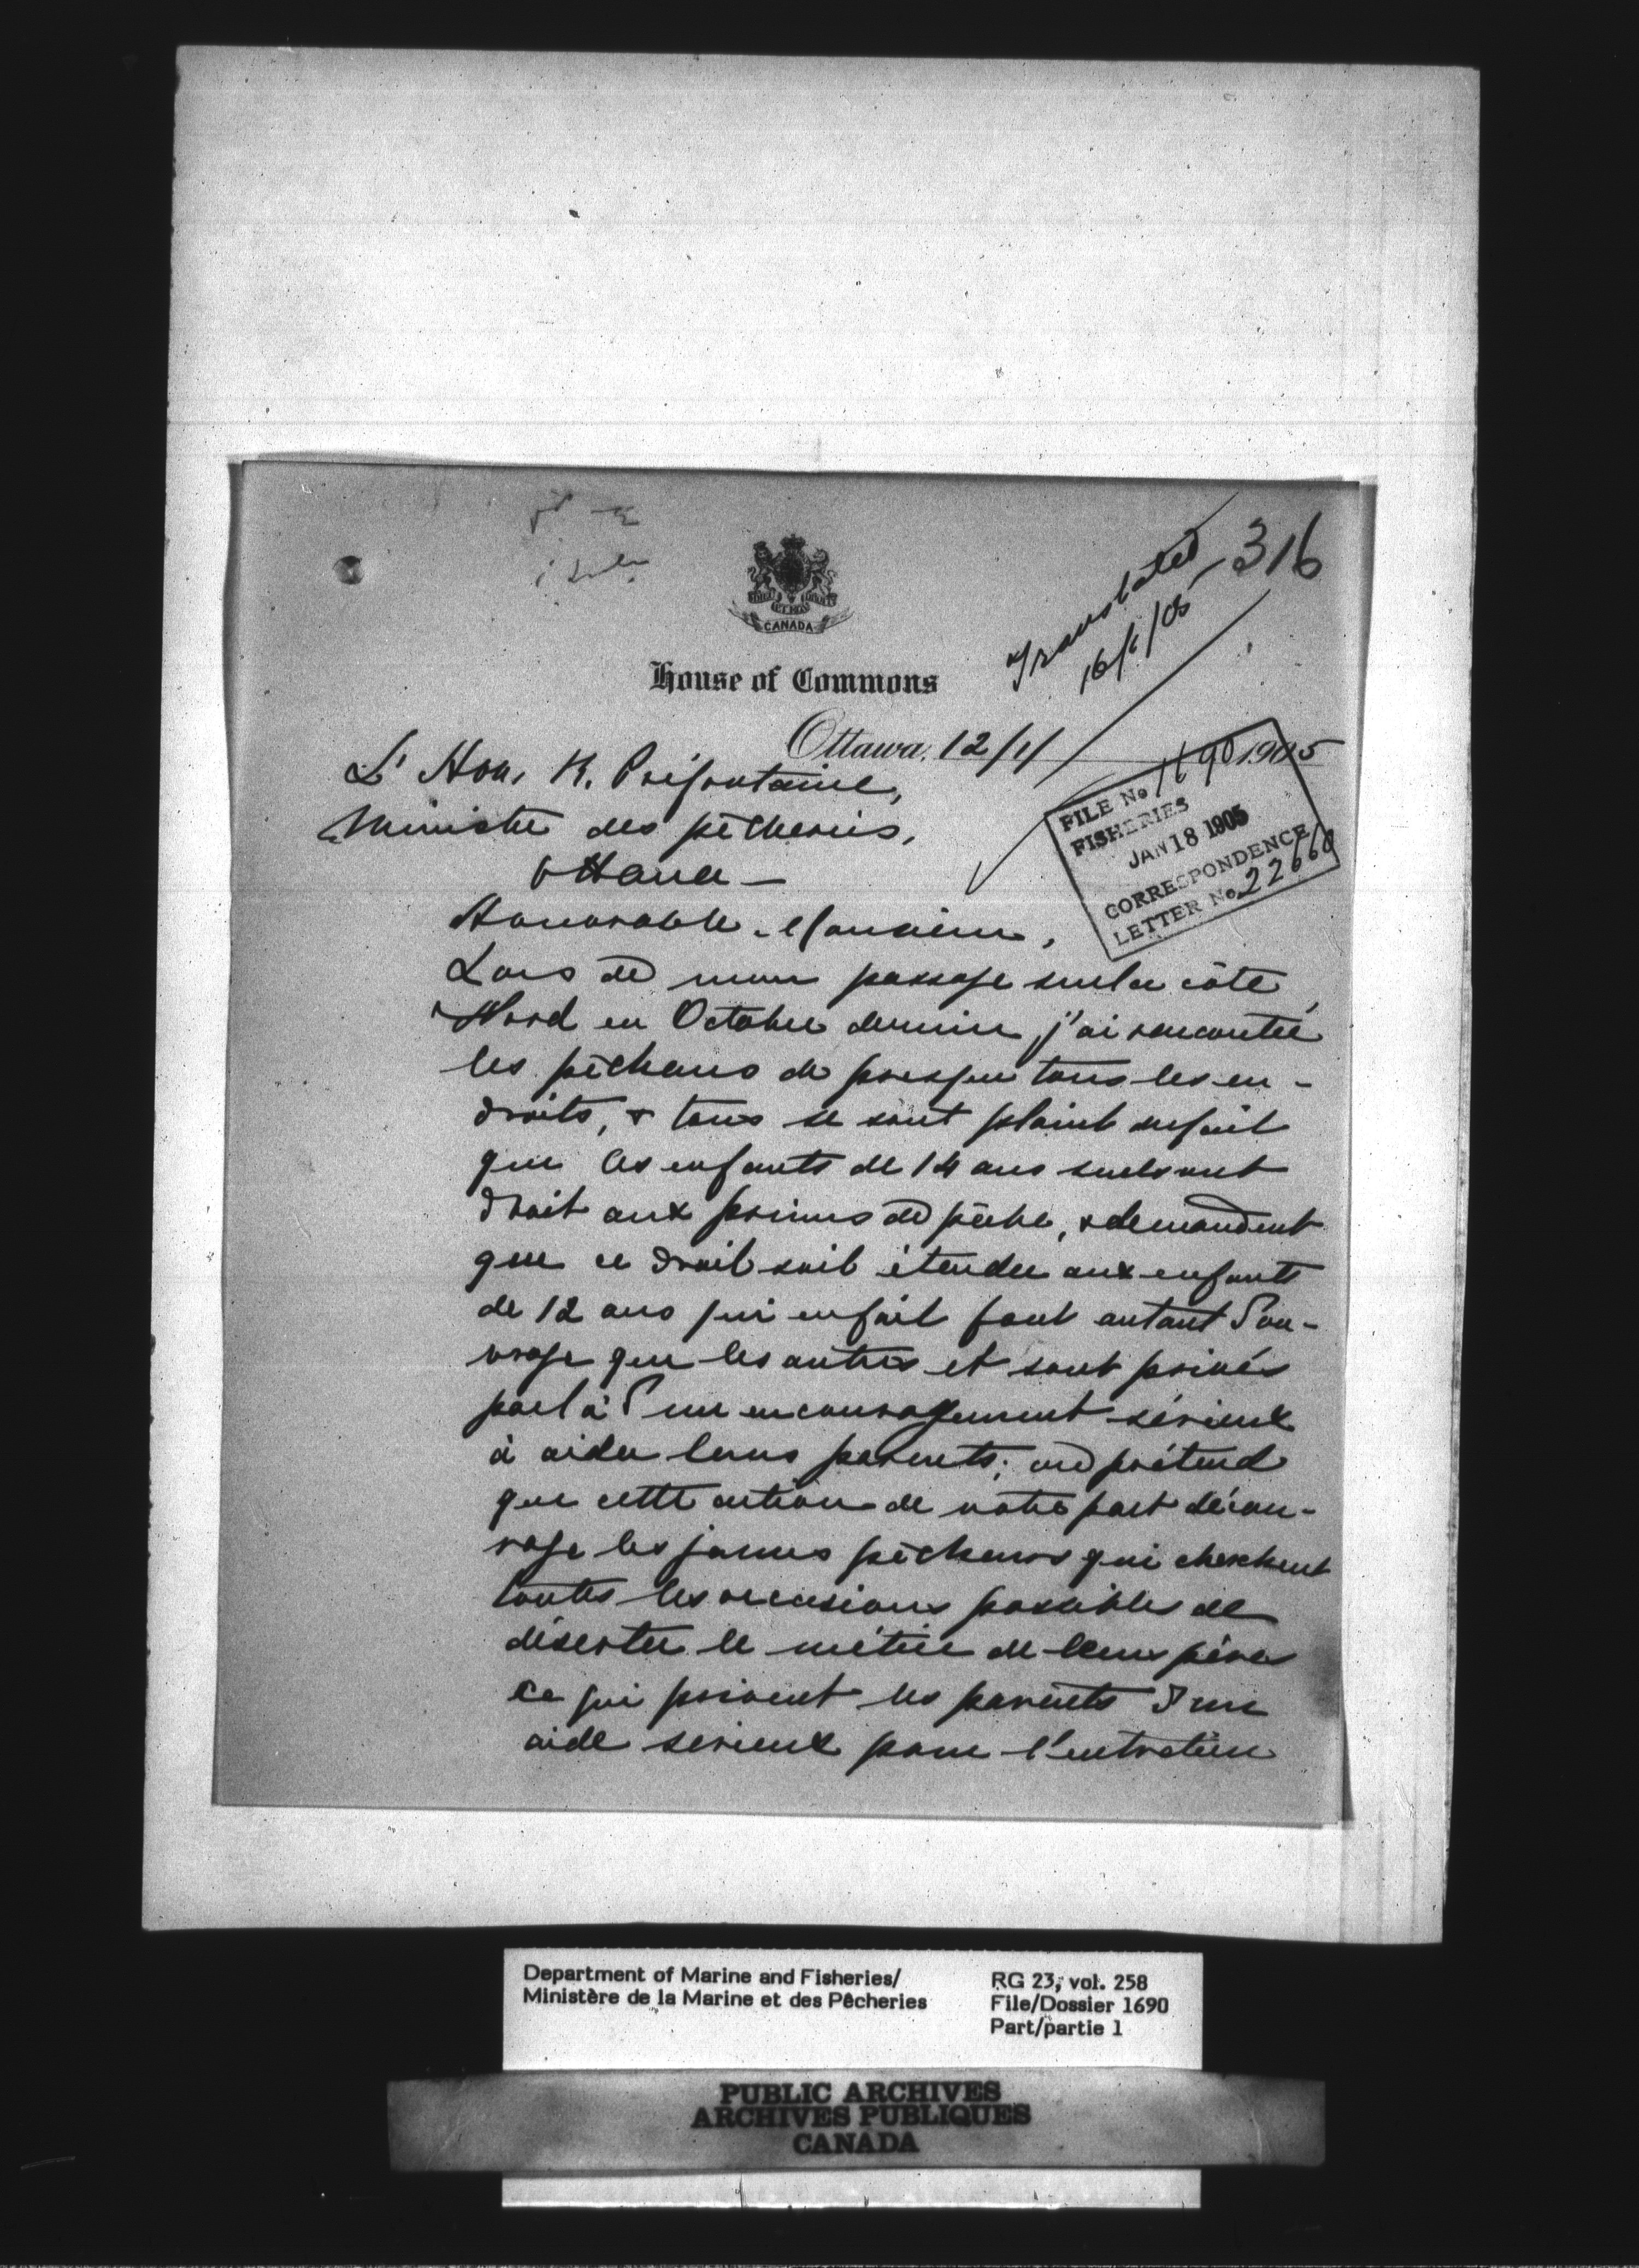 316
Translated
16/1/05
DIEU ET MON DROIT
CANADA
House of Commons
Ottawa, 12/1/ 1905
L'Hon. R. Préfontaine,
Ministre des pêcheries,
Ottawa —
FILE No 1690
FISHERIES
JAN 18 1905
CORRESPONDENCE
LETTER No 22660
Honorable Monsieur,
Lors de mon passage sur la côte
Nord en Octobre dernier, j'ai rencontré
les pêcheurs de presque tous les en-
droits, & tous se sont plaint du fait
que les enfants de 14 ans seuls ont
droit aux primes de pêche, & demandent
que ce droit soit étendu aux enfants
de 12 ans qui en fait font autant d'ou-
vrage que les autres et sont privés
par là d'un encouragement sérieux
à aider leurs parents; on prétend
que cette action de notre part décou-
rage les jeunes pêcheurs qui cherchent
toutes les occasions possibles de
déserter le métier de leurs pères
ce qui privent les parents d'un
aide serieux pour l'entretien
Department of Marine and Fisheries/
Ministère de la Marine et des Pêcheries
RG 23, vol. 258
File/Dossier 1690
Part/partie 1
PUBLIC ARCHIVES
ARCHIVES PUBLIQUES
CANADA